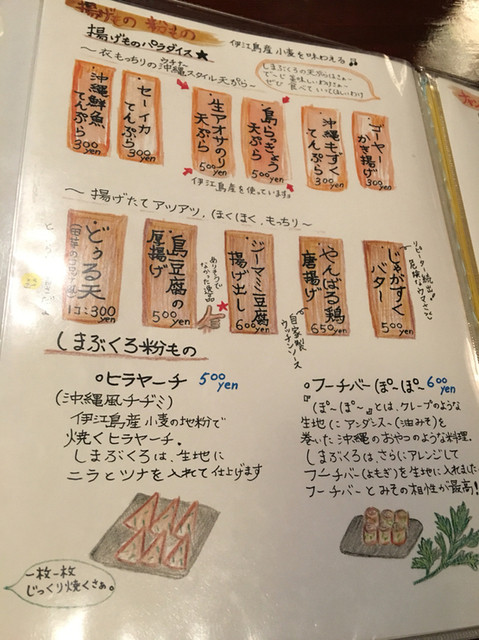 揚げもの 粉もの
揚げものパラダイス★
伊江島産小麦を味わえる♪
〜衣もっちりの沖縄スタイル天ぷら〜
ウチナー
しまぶくろの天ぷらはさぁ〜
ぜひ食べていってほしいわけ
・ゴーヤーかき揚げ 300yen
・沖縄もずくてんぷら 300yen
・島らっきょう天ぷら 500yen
・生アオサのり天ぷら 500yen
・セーイカてんぷら 300yen
・沖縄鮮魚てんぷら 300yen
伊江島産を使っています
〜揚げたてアツアツ、ほくほく、もっちり〜
・じゃがすくバター 500yen
・やんばる鶏唐揚げ 650yen
自家製ウッチンソース
・ジーマミ豆腐揚げ出し 600yen
ありそうでなかった逸品
・島豆腐の厚揚げ 500yen
・どぅる天
1コ:300yen
しまぶくろ粉もの
○ヒラヤーチ 500yen
(沖縄風チヂミ)
伊江島産小麦の地粉で
焼くヒラヤーチ。
しまぶくろは、生地に
ニラとツナを入れて仕上げます
一枚一枚
じっくり焼くさぁ。
○フーチバーぽ〜ぽ〜 600yen
『ぽ〜ぽ〜』とは、クレープのような
生地にアンダンスー(油みそ)を
巻いた沖縄のおやつのような料理。
しまぶくろは、さらにアレンジして
フーチバー(よもぎ)を生地に入れました
フーチバーとみその相性が最高!